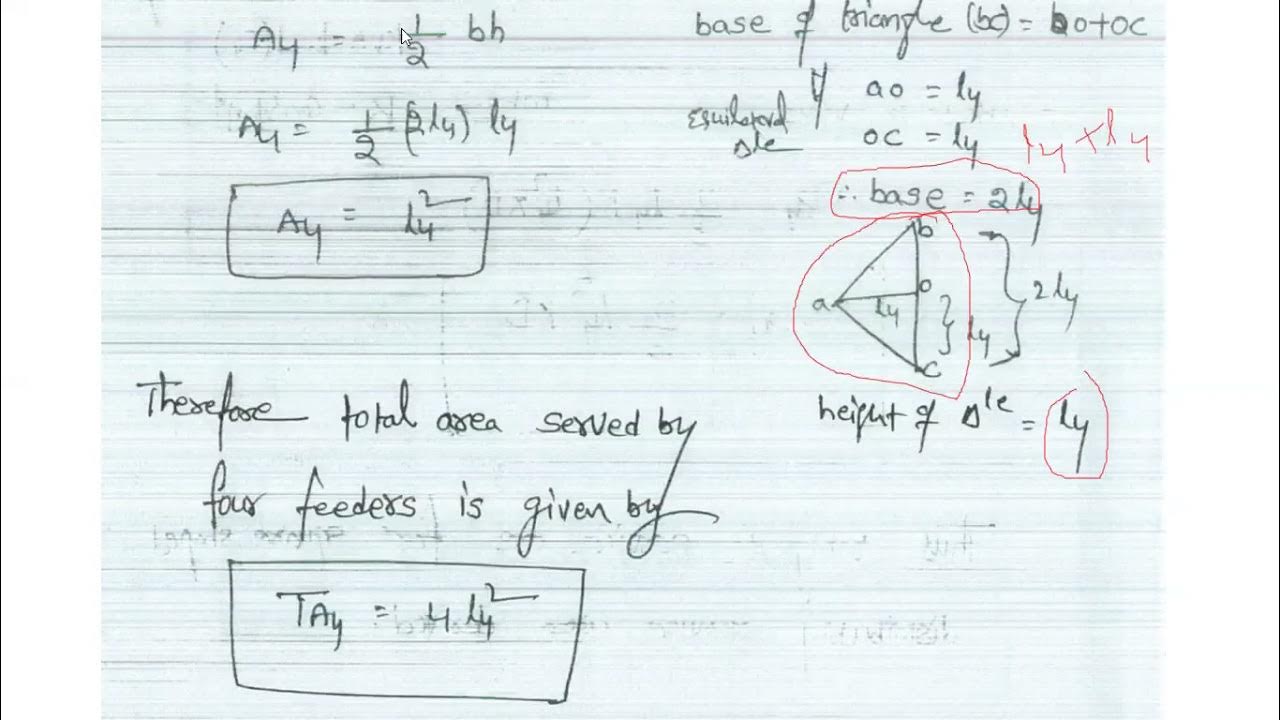 A₄ = 1/2 bh
A₄ = 1/2 (2l₄) l₄
A₄ = l₄²
base of triangle (bc) = bo+oc
Equilateral
Δle
ao = l₄
oc = l₄
l₄ × l₄
∴ base = 2l₄
b
a
o
c
l₄
l₄
2l₄
height of Δle = l₄
Therefore total area served by
four feeders is given by
TA₄ = 4l₄²